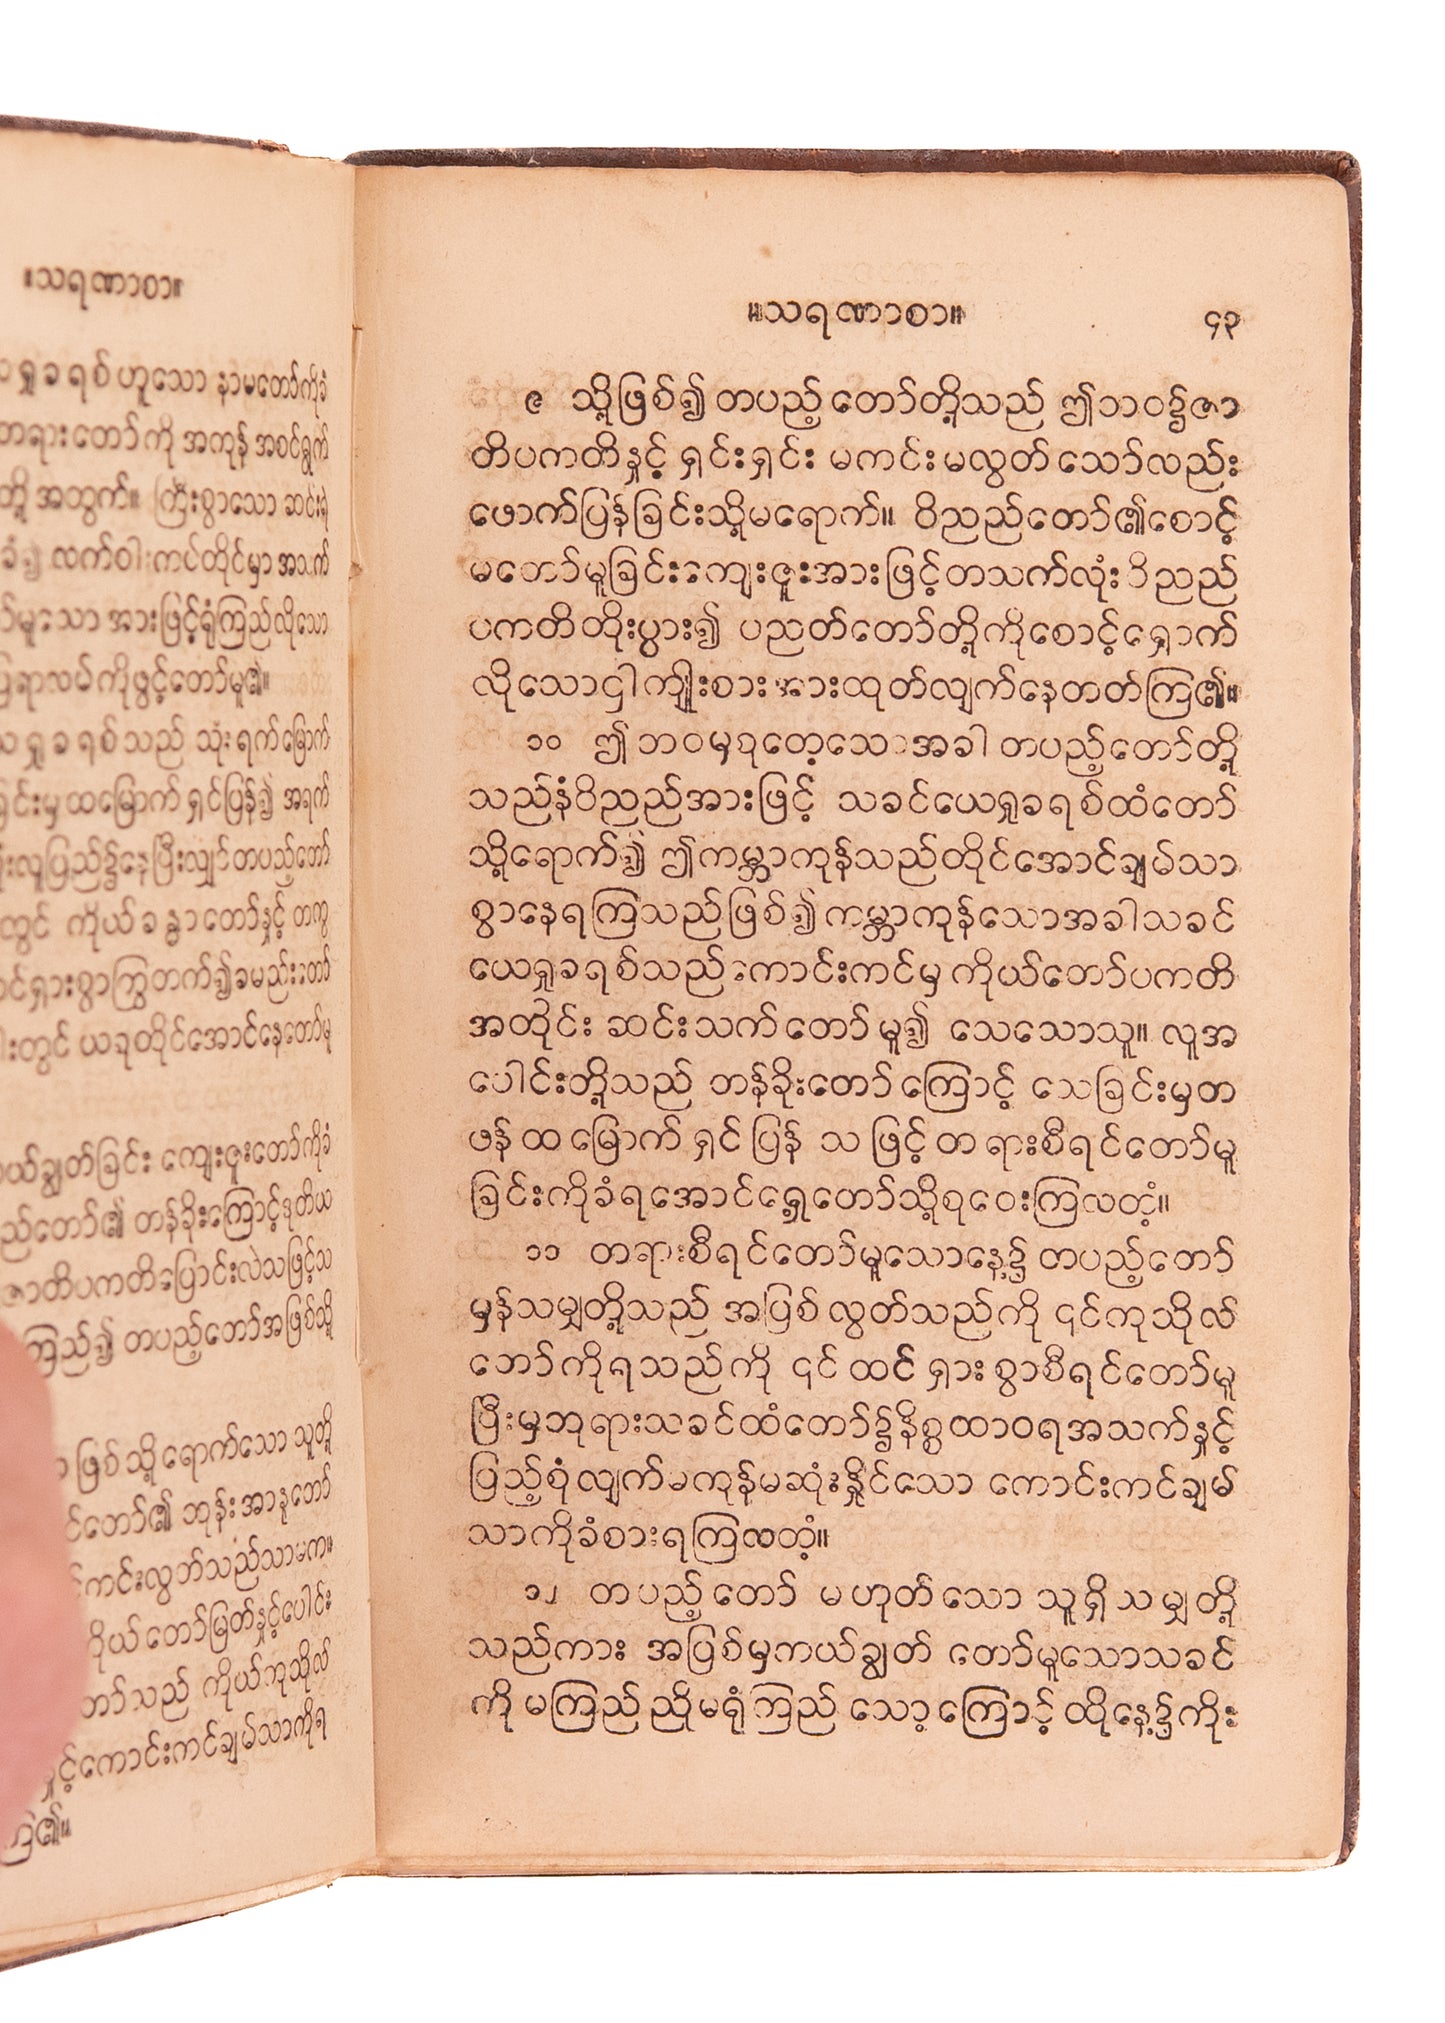 ။သရဏာဝါ။
ရှုခရစ်ဟူသော နာမတော်ကိုခံ
တရားတော်ကို အကုန် အစင်ရွက်
တို့ အတွက်။ ကြီးစွာသော ဆင်းရဲ
ခံ၍ လက်ဝါးကပ်တိုင်မှာ အသက်
မူသော အားဖြင့်ရုံကြည်လိုသော
ရာလမ်းကိုဖွင့်တော်မူ၏။
ရှုခရစ်သည် သုံးရက်မြောက်
ခြင်းမှ ထမြောက် ရှင်ပြန်၍ အရက်
လူပြည်၌နေပြီးလျှင်တပည့်တော်
တွင် ကိုယ်ခန္ဓာတော်နှင့် တကွ
ထင်ရှားစွာကြွတက်၍ခမည်းတော်
တွင် ယခုတိုင်အောင်နေတော်မူ
ကယ်ချွတ်ခြင်း ကျေးဇူးတော်ကိုခံ
ညည်တော်၏ တန်ခိုးကြောင့်ဒုတိယ
ဇာတိပကတိပြောင်းလဲသဖြင့်သ
ကြည်၍ တပည့်တော်အဖြစ်သို့
ဖြစ်သို့ ရောက်သော သူတို့
ခင်တော်၏ ဘုန်းအာနုတော်
ကင်းလွတ်သည်သာမက။
ကိုယ်တော်မြတ်နှင့်ပေါင်း
တော်သည် ကိုယ်ကုသိုလ်
နှင့်ကောင်းကင်ချမ်သာကိုရ
ကြ၏။
။သရဏာစာ။ ၄၃
၉ သို့ဖြစ်၍ တပည့်တော်တို့သည် ဤဘဝ၌ဇာ
တိပကတိနှင့် ရှင်းရှင်း မကင်းမလွတ်သော်လည်း
ဖောက်ပြန်ခြင်းသို့မရောက်။ ဝိညည်တော်၏စောင့်
မတော်မူခြင်းကျေးဇူးအားဖြင့်တသက်လုံးဝိညည်
ပကတိတိုးပွား၍ ပညတ်တော်တို့ကိုစောင့်ရှောက်
လိုသောဌါကျိုးစားအားထုတ်လျက်နေတတ်ကြ၏။
၁၀ ဤဘဝမှစုတေ့သောအခါ တပည့်တော်တို့
သည်နံဝိညည်အားဖြင့် သခင်ယေရှုခရစ်ထံတော်
သို့ရောက်၍ ဤကမ္ဘာကုန်သည်တိုင်အောင်ချမ်သာ
စွာနေရကြသည်ဖြစ်၍ ကမ္ဘာကုန်သောအခါသခင်
ယေရှုခရစ်သည်ကောင်းကင်မှ ကိုယ်တော်ပကတိ
အတိုင်း ဆင်းသက်တော်မူ၍ သေသောသူ။ လူအ
ပေါင်းတို့သည် တန်ခိုးတော်ကြောင့် သေခြင်းမှတ
ဖန် ထမြောက် ရှင်ပြန် သဖြင့် တရားစီရင်တော်မူ
ခြင်းကိုခံရအောင်ရှေ့တော်သို့စုဝေးကြလတံ့။
၁၁ တရားစီရင်တော်မူသောနေ့၌ တပည့်တော်
မှန်သမျှတို့သည် အပြစ်လွတ်သည်ကို ၎င်ကုသိုလ်
တော်ကိုရသည်ကို ၎င် ထင်ရှားစွာစီရင်တော်မူ
ပြီးမှဘုရားသခင်ထံတော်၌နိစ္စထာဝရအသက်နှင့်
ပြည့်စုံလျက်မကုန်မဆုံးနိုင်သော ကောင်းကင်ချမ်
သာကိုခံစားရကြလတံ့။
၁၂ တပည့်တော် မဟုတ်သော သူရှိသမျှတို့
သည်ကား အပြစ်မှကယ်ချွတ် တော်မူသောသခင်
ကို မကြည်ညိုမရုံကြည် သော့ကြောင့် ထိုနေ့၌ကိုး